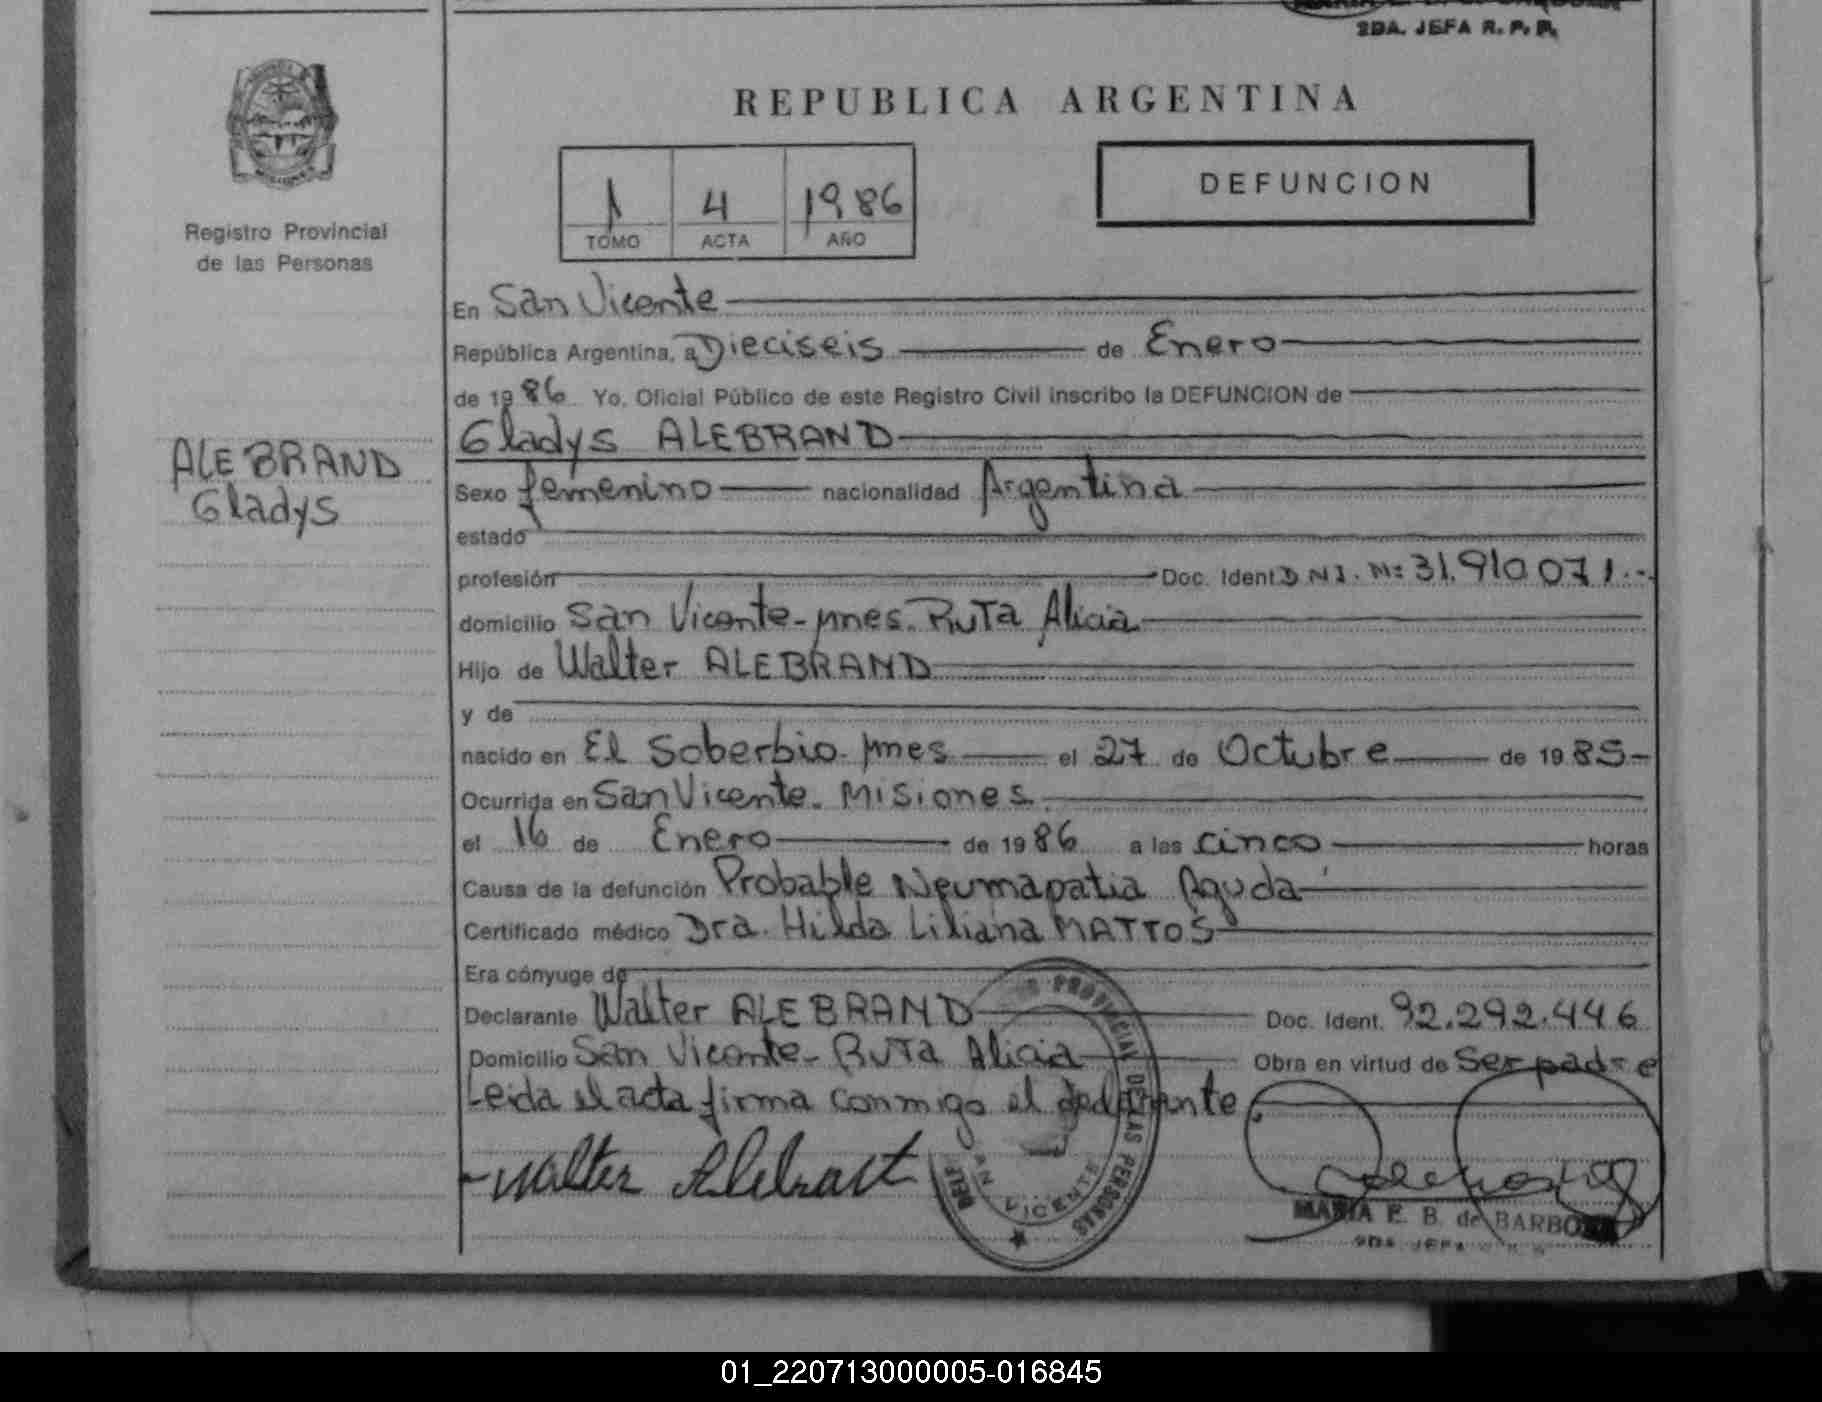 2DA. JEFA R. P. P.
REPUBLICA ARGENTINA
1 4 1986
TOMO ACTA AÑO
DEFUNCION
Registro Provincial
de las Personas
ALEBRAND
Gladys
En San Vicente
República Argentina, a Dieciseis de Enero
de 1986 Yo, Oficial Público de este Registro Civil inscribo la DEFUNCION de
Gladys ALEBRAND
Sexo femenino nacionalidad Argentina
estado
profesión Doc. Ident DNI. Nº 31.910.071.-
domicilio San Vicente - Mnes. Ruta Alicia
Hijo de Walter ALEBRAND
y de
nacido en El Soberbio. Mnes el 27 de Octubre de 1985-
Ocurrida en San Vicente. Misiones
el 16 de Enero de 1986 a las cinco horas
Causa de la defunción Probable Neumapatia Aguda
Certificado médico Dra. Hilda Liliana MATTOS
Era cónyuge de
Declarante Walter ALEBRAND Doc. Ident. 92.292.446
Domicilio San Vicente - Ruta Alicia Obra en virtud de Ser padre
Leida el acta firma conmigo el declarante
Walter Alebrant
PROVINCIAL DE LAS PERSONAS
SAN VICENTE
MARIA E. B. de BARBOZA
2DA. JEFA
01_220713000005-016845